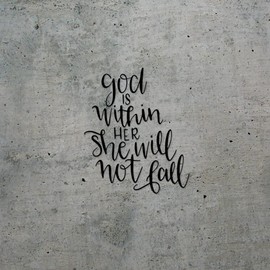 god
IS
within
HER
She will
not fall